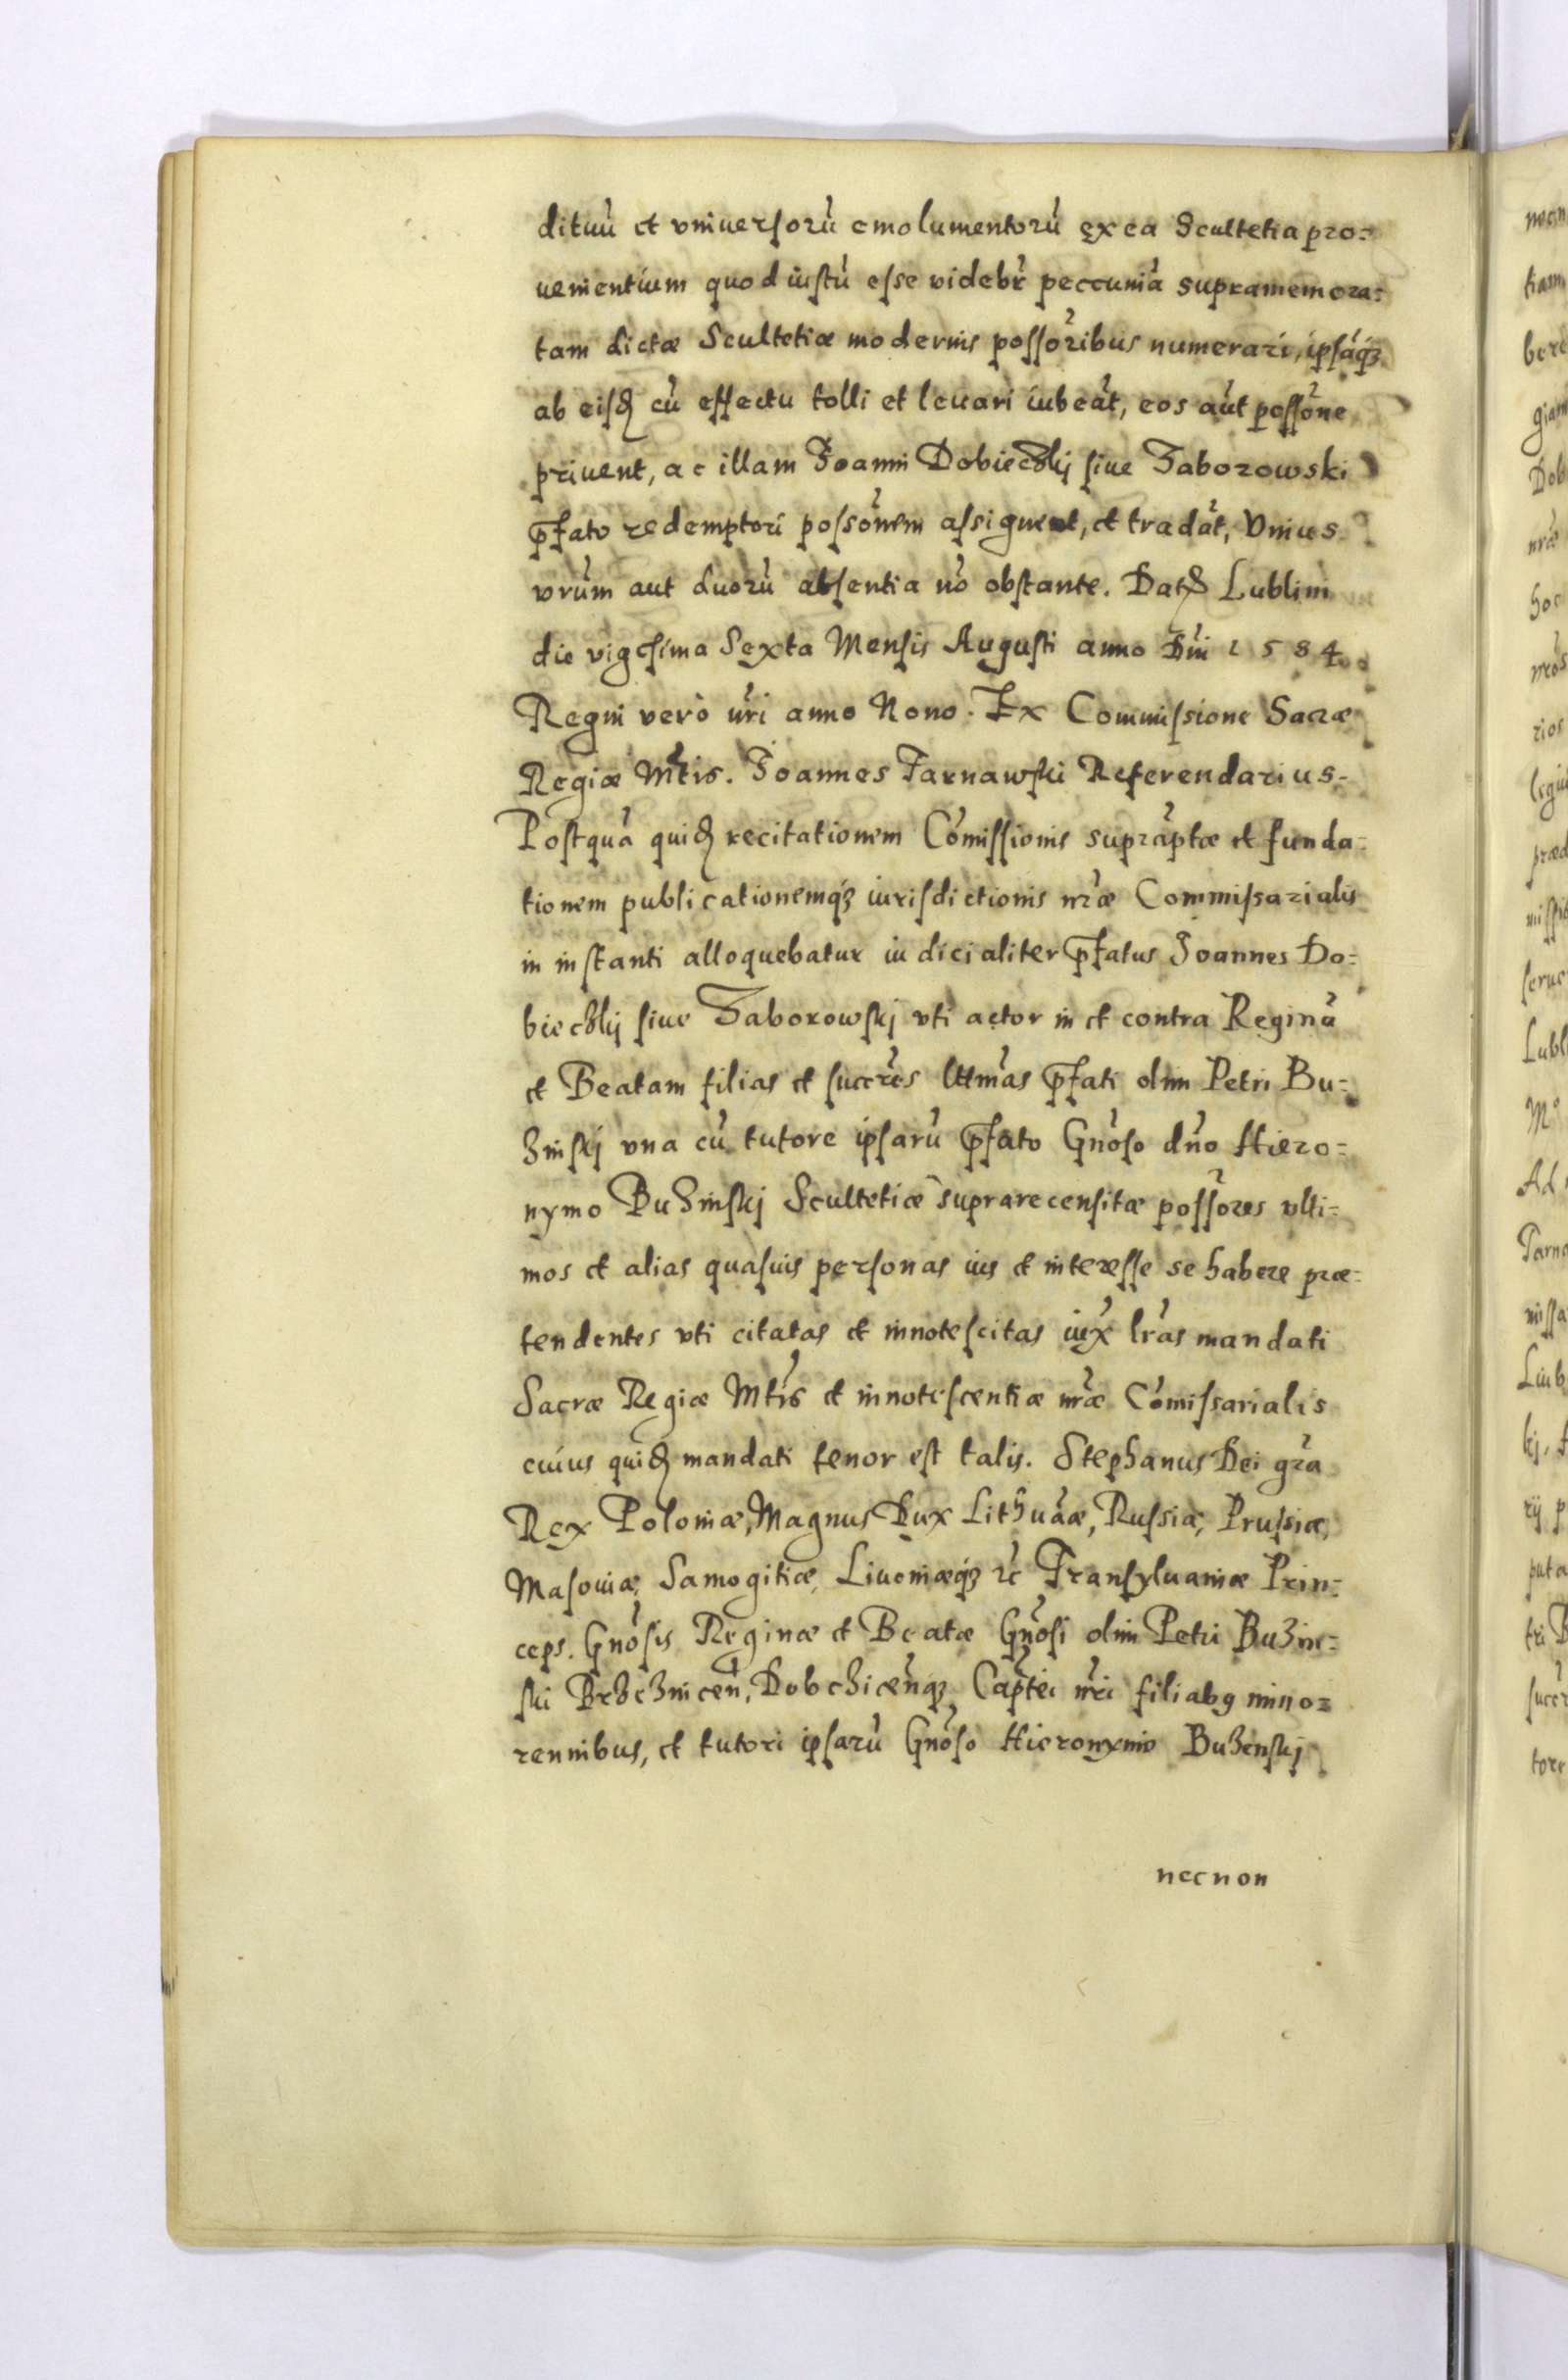 dituũ et vniuersorũ emolumentorũ ex ea Scultetia pro=
uenientium quod iustũ esse videbr̃ peccuniã supramemora=
tam dictæ Scultetiæ modernis possõribus numerari, ipsãq3
ab eisđ cũ effectu tolli et leuari iubeãt, eos aũt possõne
priuent, ac illam Joanni Dobieczkij siue Zaborowski
p̃fato redemptori possõnem assignent, et tradãt, Vnius
vrũm aut duorũ absentia nõ obstante. Datʒ Lublini
die vigesima Sexta Mensis Augusti anno Dñi 1584
Regni verò nri anno Nono. Ex Commissione Sacræ
Regiæ Mtis. Joannes Tarnawski Referendarius.
Postquã quiđ recitationem Cõmissionis suprãptæ et funda=
tionem publicationemq3 iurisdictionis nræ Commissarialis
in instanti alloquebatur iudicialiter p̃fatus Joannes Do=
bieczkij siue Zaborowskj vti actor in et contra Reginã
et Beatam filias et succr̃es lttmas p̃fati olim Petri Bu=
zinskj vna cũ tutore ipsarũ p̃fato Gnõso dño Hiero=
nymo Buzinskj Scultetiæ suprarecensitæ possõres vlti=
mos et alias quasuis personas ius et interesse se habere præ=
tendentes vti citatas et innotescitas iux̃ lrãs mandati
Sacræ Regiæ Mtis et innotescentiæ nræ Cõmissarialis
cuius quiđ mandati tenor est talis. Stephanus Dei gra
Rex Poloniæ, Magnus Dux Lithuãæ, Russiæ, Prussiæ,
Masouiæ, Samogitiæ, Liuoniæq3 ꝛc Transyluaniæ Prin=
ceps. Gnõsis Reginæ et Beatæ Gnõsi olim Petri Buzin=
ski Brzezniceñ, Dobczicenq3 Captei nri filiabꝰ mino=
rennibus, et tutori ipsarũ Gnõso Hieronymo Buzenskj
necnon